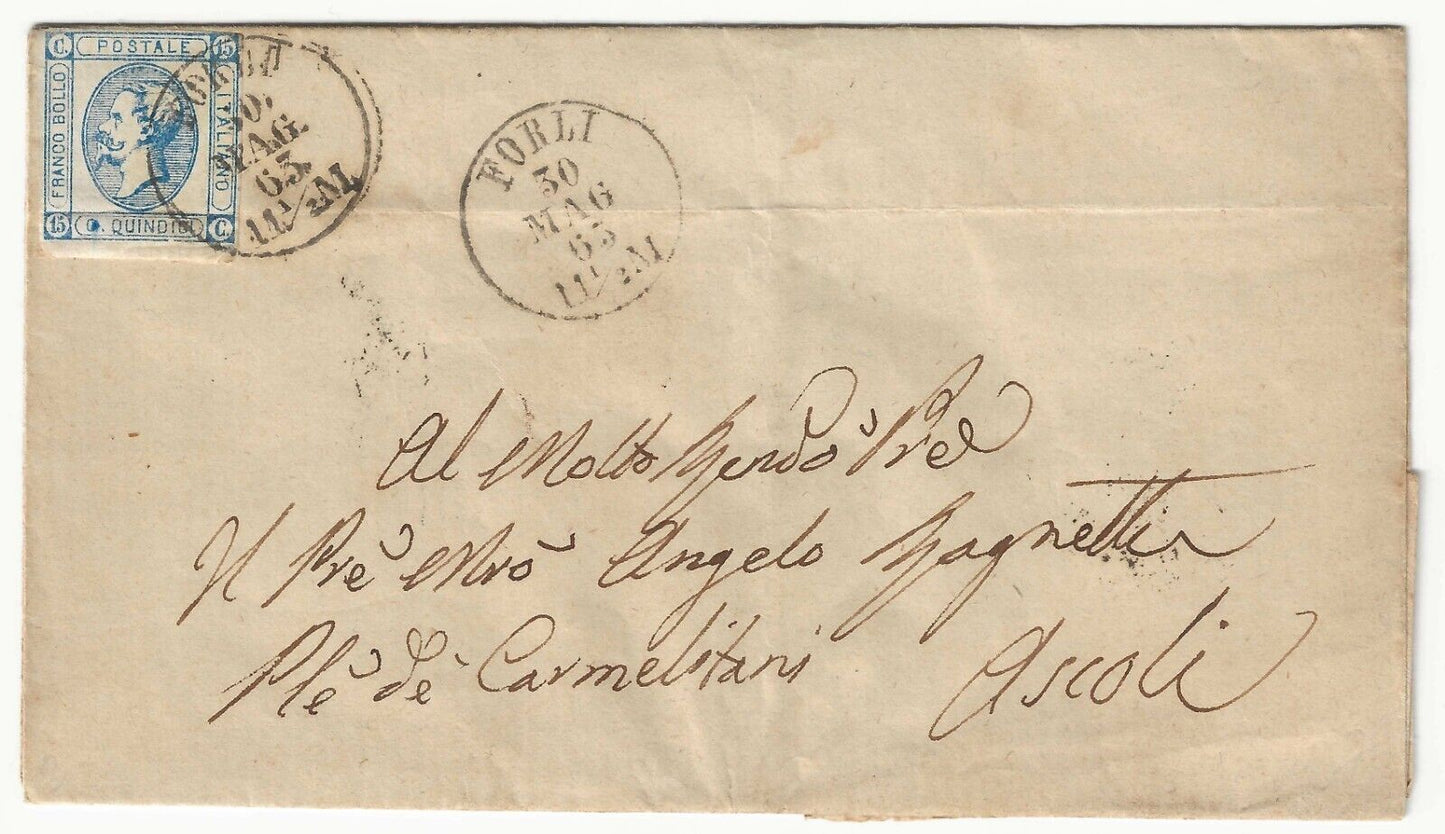 C. POSTALE 15
FRANCO BOLLO
ITALIANO
15 C. QUINDICI C.
FORLI
30
MAG
63
11 1/2 M
FORLI
30
MAG
63
11 1/2 M
Al Molto Rendo Pre
Il Prè Mrò Angelo Pagnetti
Plè dè Carmelitani
Ascoli